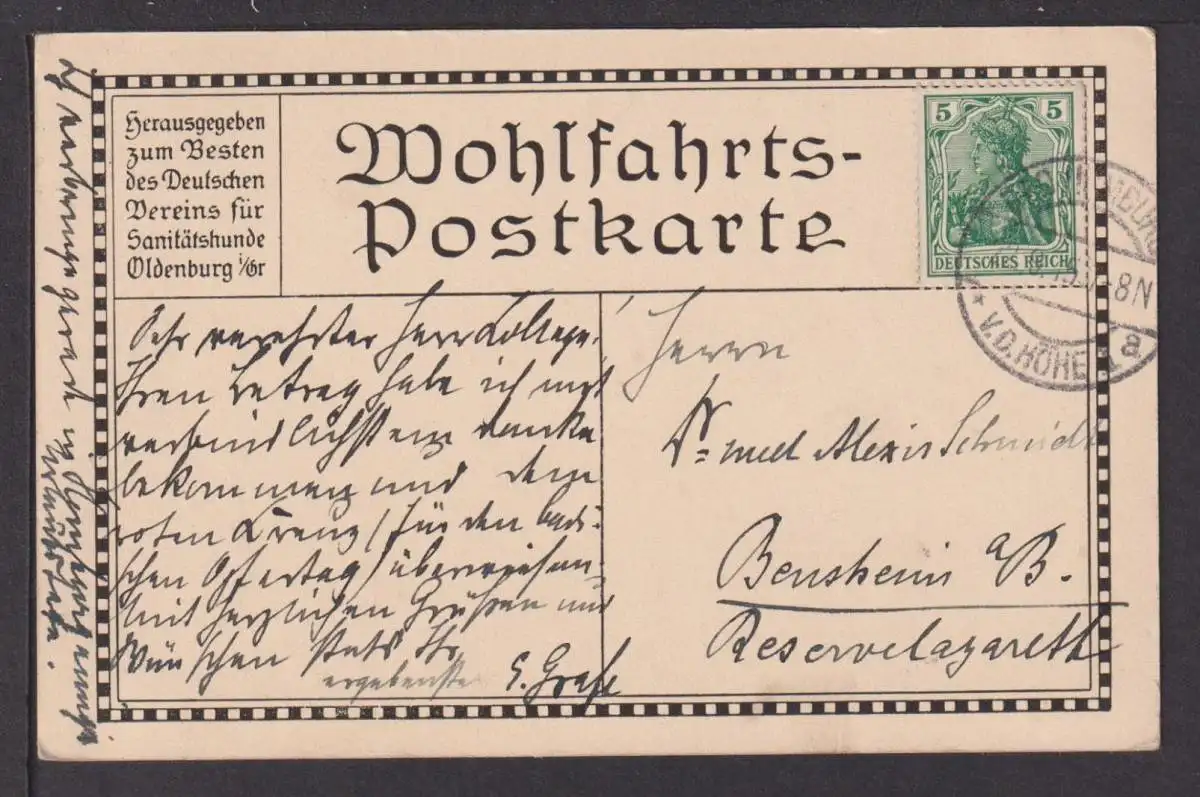 Herausgegeben
zum Besten
des Deutschen
Vereins für
Sanitätshunde
Oldenburg i/Gr
Wohlfahrts-
Postkarte
5 5
DEUTSCHES REICH
HOMBURG
-8N
* V.D. HÖHE a
Sehr verehrter Herr Kollege,
Ihren Betrag habe ich mit
verbindlichstem Danke
bekommen und dem
roten Kreuz (für den badi-
schen Opfertag) überwiesen.
Mit herzlichen Grüßen und
Wünschen stets Ihr
ergebenster
Herrn
Dr. med Alexis Schmidt
Bensheim a/B.
Reservelazareth